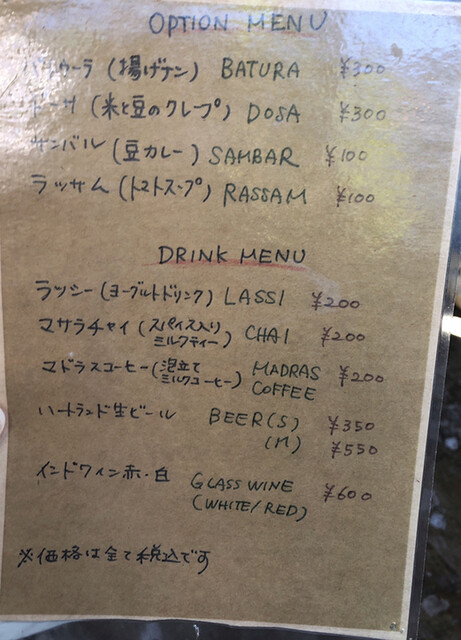 OPTION MENU
バトゥーラ (揚げナン) BATURA ¥300
ドーサ (米と豆のクレープ) DOSA ¥300
サンバル (豆カレー) SAMBAR ¥100
ラッサム (トマトスープ) RASSAM ¥100
DRINK MENU
ラッシー (ヨーグルトドリンク) LASSI ¥200
マサラチャイ (スパイス入りミルクティー) CHAI ¥200
マドラスコーヒー (泡立てミルクコーヒー) MADRAS COFFEE ¥200
ハートランド生ビール BEER(S) ¥350
(M) ¥550
インドワイン赤・白 GLASS WINE ¥600
(WHITE/RED)
※価格は全て税込です